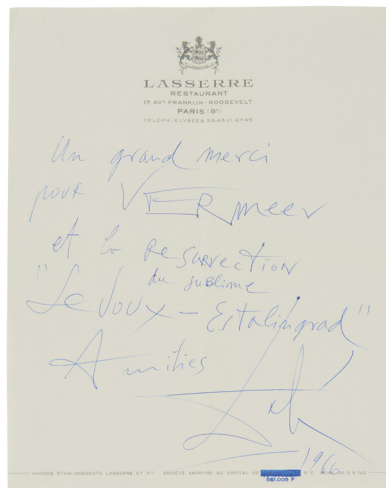 LASSERRE
RESTAURANT
17, AVE FRANKLIN-ROOSEVELT
PARIS (8e)
Un grand merci
pour VERmeer
et la RESURRECTION
du sublime
"Le Voux – Estalingrad"
Amitiés
1966
ANCIENS ÉTABLISSEMENTS LASSERRE ET
SOCIÉTÉ ANONYME AU CAPITAL DE